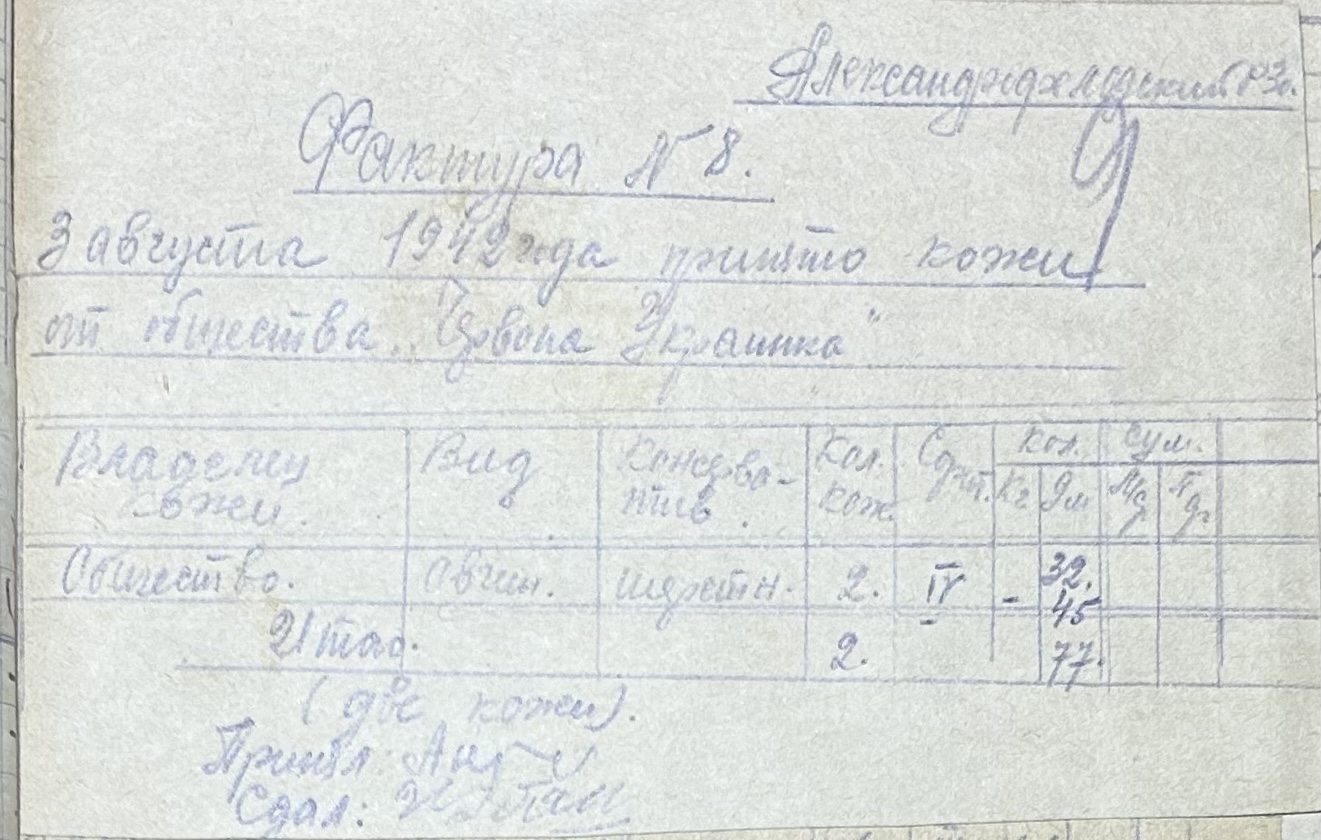 Александрфельдский РЗо.
Фактура N 8.
3 августа 1942 года принято кожи
от общества „Червона Украинка"
Владелец кожи. Вид Консерва-тив. Кол. кож. Сорт. Кол. Сум.
Кг Дм
Общество. Овчин. шерстн. 2. IV - 32.
45
Итого. 2. 77.
(две кожи).
Принял:
Сдал: